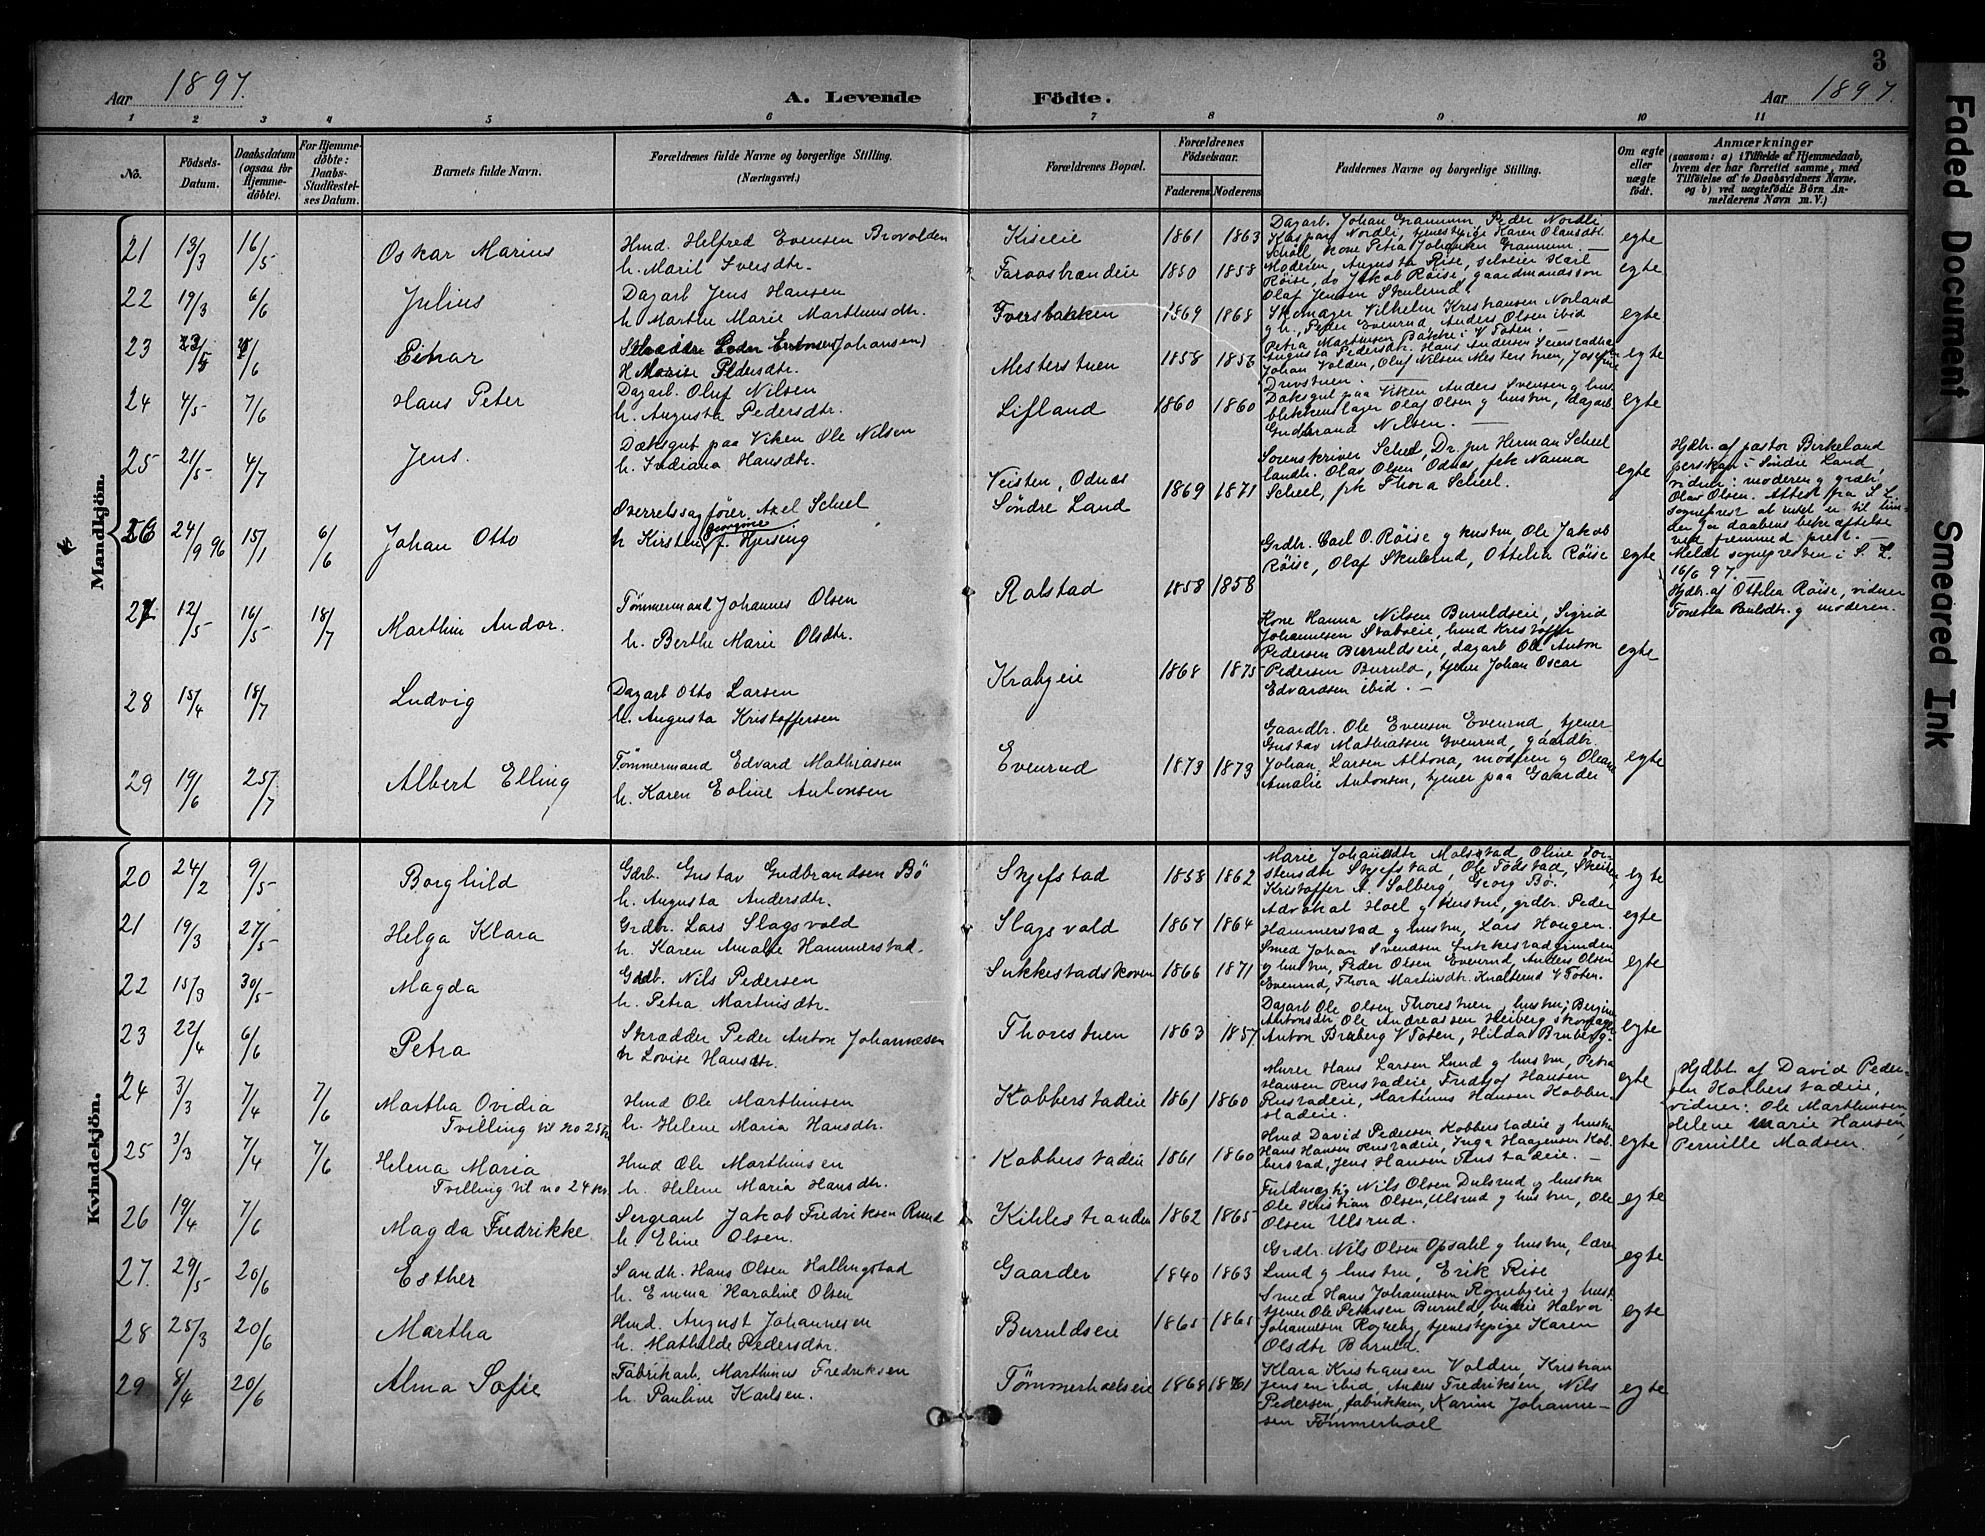 3
Aar 1897. A. Levende Födte. Aar 1897.
1 2 3 4 5 6 7 8 9 10 11
No.
Födsels-
Datum.
Daabsdatum
(ogsaa for
Hjemme-
döbte).
For Hjemme-
döbte:
Daabs-
Stadfæstel-
ses Datum.
Barnets fulde Navn.
Forældrenes fulde Navne og borgerlige Stilling.
(Næringsvei.)
Forældrenes Bopæl.
Forældrenes
Födselsaar.
Faderens Moderens
Faddernes Navne og borgerlige Stilling.
Om ægte
eller
uægte
födt.
Anmærkninger
(saasom: a) i Tilfælde af Hjemmedaab,
hvem der har forrettet samme, med
Tilföielse af to Daabsvidners Navne,
og b) ved uægtefödte Börn An-
melderens Navn m. V.)
Mandkjön.
21 13/3 16/5 Oskar Marius
Hmd. Helfred Evensen Brovolden
h. Marit Iversdtr.
Kiseie 1861 1863
Dagarb. Johan Grammum, Peder Nordli
Kaspar Nordli, tjenestepige Karen Olausdtr.
Schøll, kone Petra Johansen Grammum. —
egte
22 19/3 6/6 Julius
Dagarb Jens Hansen
h. Marthe Marie Marthinusdtr.
Faraasbrændeie 1850 1858
Moderen, Augusta Rise, selveier Karl
Røise, do Jakob Røise, gaardmandssøn
Olaf Jensen Skulerud.
egte
23 23/5 /6 Einar
Johansen)
H Marise Pedersdtr.
Iversbakken 1869 1868
Skomager Vilhelm Kristiansen Norland
g h., Peder Evenrud, Anders Olsen ibid
Petra Martinsen Bakke i V Toten. —
egte
24 4/5 7/6 Hans Peter
Dagarb. Oluf Nilsen
h. Augusta Pedersdtr.
Mesterstuen 1858 1856
Augusta Pedersdtr. Hans Andersen
Johan Volden, Oluf Nilsen Mesterstuen, Josefine
Drevstuen. —
egte
25 21/5 4/7 Jens.
Dæksgut paa Viken Ole Nilsen
h. Indiana Hansdtr.
Lifland 1860 1860
Dæksgut paa Viken Anders Svensen g hust.
blikkenslager Olaf Olsen g hustru, dagarb.
Gudbrand Nilsen. —
egte
26 24/9 96 15/1 6/6 Johan Otto
Overretssagfører Axel Scheel
h Kirsten Georgine f. Hjersing
Veisten, Odnæs
Søndre Land
1869 1871
Sorenskriver Scheel, Dr. jur Herman Scheel
landh. Olav Olsen Odnæs, frk Nanna
Scheel, frk Thora Scheel.
egte
Hjdbr. af pastor Birkeland
perskap. i Søndre Land,
vidner: moderen g grdbr.
Olav Olsen. Attest fra S L.
sogneprest at intet er til hin-
der for daabens bekræftelse
ved fremmed prest. —
Meldt sognepresten i S. L.
16/6 97. —
27 12/5 16/5 18/7 Marthin Andor.
Tømmermand Johannes Olsen
h. Berthe Marie Olsdtr.
Rolstad 1858 1858
Grdbr. Carl O. Røise g hustru, Ole Jakob
Røise, Olaf Skulerud, Ottilia Røise
egte
Hjdbr. af Ottilia Røise, vidner
Tonetta Paulsdtr. g moderen.
28 15/4 18/7 Ludvig
Dagarb Otto Larsen
h. Augusta Kristoffersen
Krabyeie 1868 1875
Kone Hanna Nilsen Buruldseie, Sigrid
Johannesen Stabseie, hmd Kristoffer
Pedersen Buruldseie, dagarb Ole Anton
Pedersen Buruld, tjener Johan Oscar
Edvardsen ibid. —
egte
29 19/6 25/7 Albert Elling
Tømmermand Edvard Mathiassen
h. Karen Eoline Antonsen
Evenrud 1873 1873
Gaardbr. Ole Evensen Evenrud, tjener
Gustav Mathiassen Evenrud, gaardbr.
Johan Larsen Altona, modren g Oleane
Amalie Antonsen, tjener paa Gaarder
egte
Kvindekjön.
20 24/2 9/5 Borghild
Gdrb. Gustav Gudbrandsen Bö
h. Augusta Andersdtr.
Skjefstad 1858 1862
Marie Johansdtr Malstad Oline Tor-
stensdtr Skjefstad, Ole Fodstad, Skeiby
Kristoffer A. Solberg, Georg Bø.
egte
21 19/3 27/5 Helga Klara
Grdbr. Lars Slagsvold
h. Karen Amalie Hammerstad.
Slagsvold 1867 1864
Advokat Hoel g hustru, grdbr. Peder
Hammerstad g hustru, Lars Haugen.
egte
22 15/3 30/5 Magda
Grdb. Nils Pedersen
h. Petra Martinisdtr.
Sukkestadskoven 1866 1871
Smed Johan Svendsen Sukkestadgrinden
g hustru, Peder Olsen Evenrud Anders Olsen
Evenrud, Thora Martinsdtr. Knaltens V Toten.
egte
23 22/4 6/6 Petra
Skrædder Peder Anton Johannesen
h Lovise Hansdtr.
Thorestuen 1863 1857
Dagarb Ole Olsen Thorestuen, hustru, Bergine
Antonsdtr Ole Andreassen Heiberg skomager
Anton Braberg V Toten, Hilda Braberg.
egte
24 3/3 7/4 7/6 Martha Ovidia
Tvilling til no 25 kv
Hmd Ole Marthinsen
h. Helene Maria Hansdtr.
Kobberstadeie 1861 1860
Murer Hans Larsen Lund g hustru, Petra
Hansen Rustadeie, Fredtjof Hansen
Rustadeie, Martinus Hansen Kobber-
stadeie.
egte
Hjdbt. af David Peder-
sen Kobberstadeie,
vidner: Ole Marthinsen,
Helene Marie Hansen,
Pernille Madsen.
25 3/3 7/4 7/6 Helena Maria
Tvilling til no 24 kv.
Hmd Ole Marthinsen
h. Helene Maria Hansdtr.
Kobberstadeie 1861 1860
Hmd David Pedersen Kobberstadeie g hustru
Hans Hansen Rustadeie, Inga Haagensen Kob-
berstad, Jens Hansen Rustadeie. —
egte
26 19/4 7/6 Magda Fredrikke
Sergeant Jakob Fredriksen Rund
h. Eline Olsen.
Kihlestranden 1862 1865
Fuldmægtig Nils Olsen Dulsrud g hustru
Ole Kristian Olsen, Ulsrud g hustru, Ole
Olsen Ulsrud.
egte
27. 29/5 20/6 Esther
Landh. Hans Olsen Hallingstad
h. Emma Karoline Olsen
Gaarder 1840 1863
Grdbr. Nils Olsen Opsahl g hustru, lærer
Lund g hustru, Erik Rise
egte
28 25/3 20/6 Martha
Hmd. August Johannesen
h. Mathilde Pedersdtr.
Buruldseie 1865 1865
Smed Hans Johannesen Rognebyeie g hust.
tjener Ole Petersen Buruld, budeie Halvor
Johannesen Rogneby, tjenestepige Karen
Olsdtr Buruld.
egte
29 8/6 20/6 Alma Sofie
Fabrikarb. Marthinus Fredriksen
h. Pauline Karlsen.
Tømmerhoelseie 1868 1861
Klara Kristiansen Volden, Kristian
Jensen ibid, Anders Fredriksen, Nils
Pedersen, fabrikken, Karine Johanne-
sen Tømmerhoel
egte
Faded Document
Smeared Ink